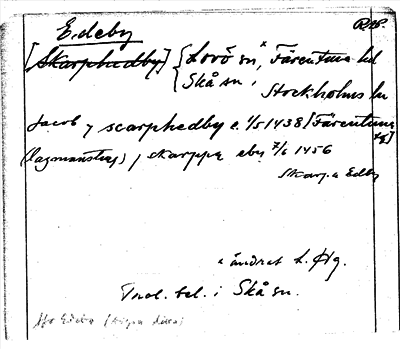 Edeby
[Skarphedby] { Lovö sn, ˣ Färentuna hd
Skå sn, Stockholms län
Jacob j scarphedby e. 1/5 1438 [Färentuna
(lagmansting), j skarppa eby 7/6 1456
Skarpa Edby
ˣ ändrat t. Hg.
Trol. bel. i Skå sn.
Edeby